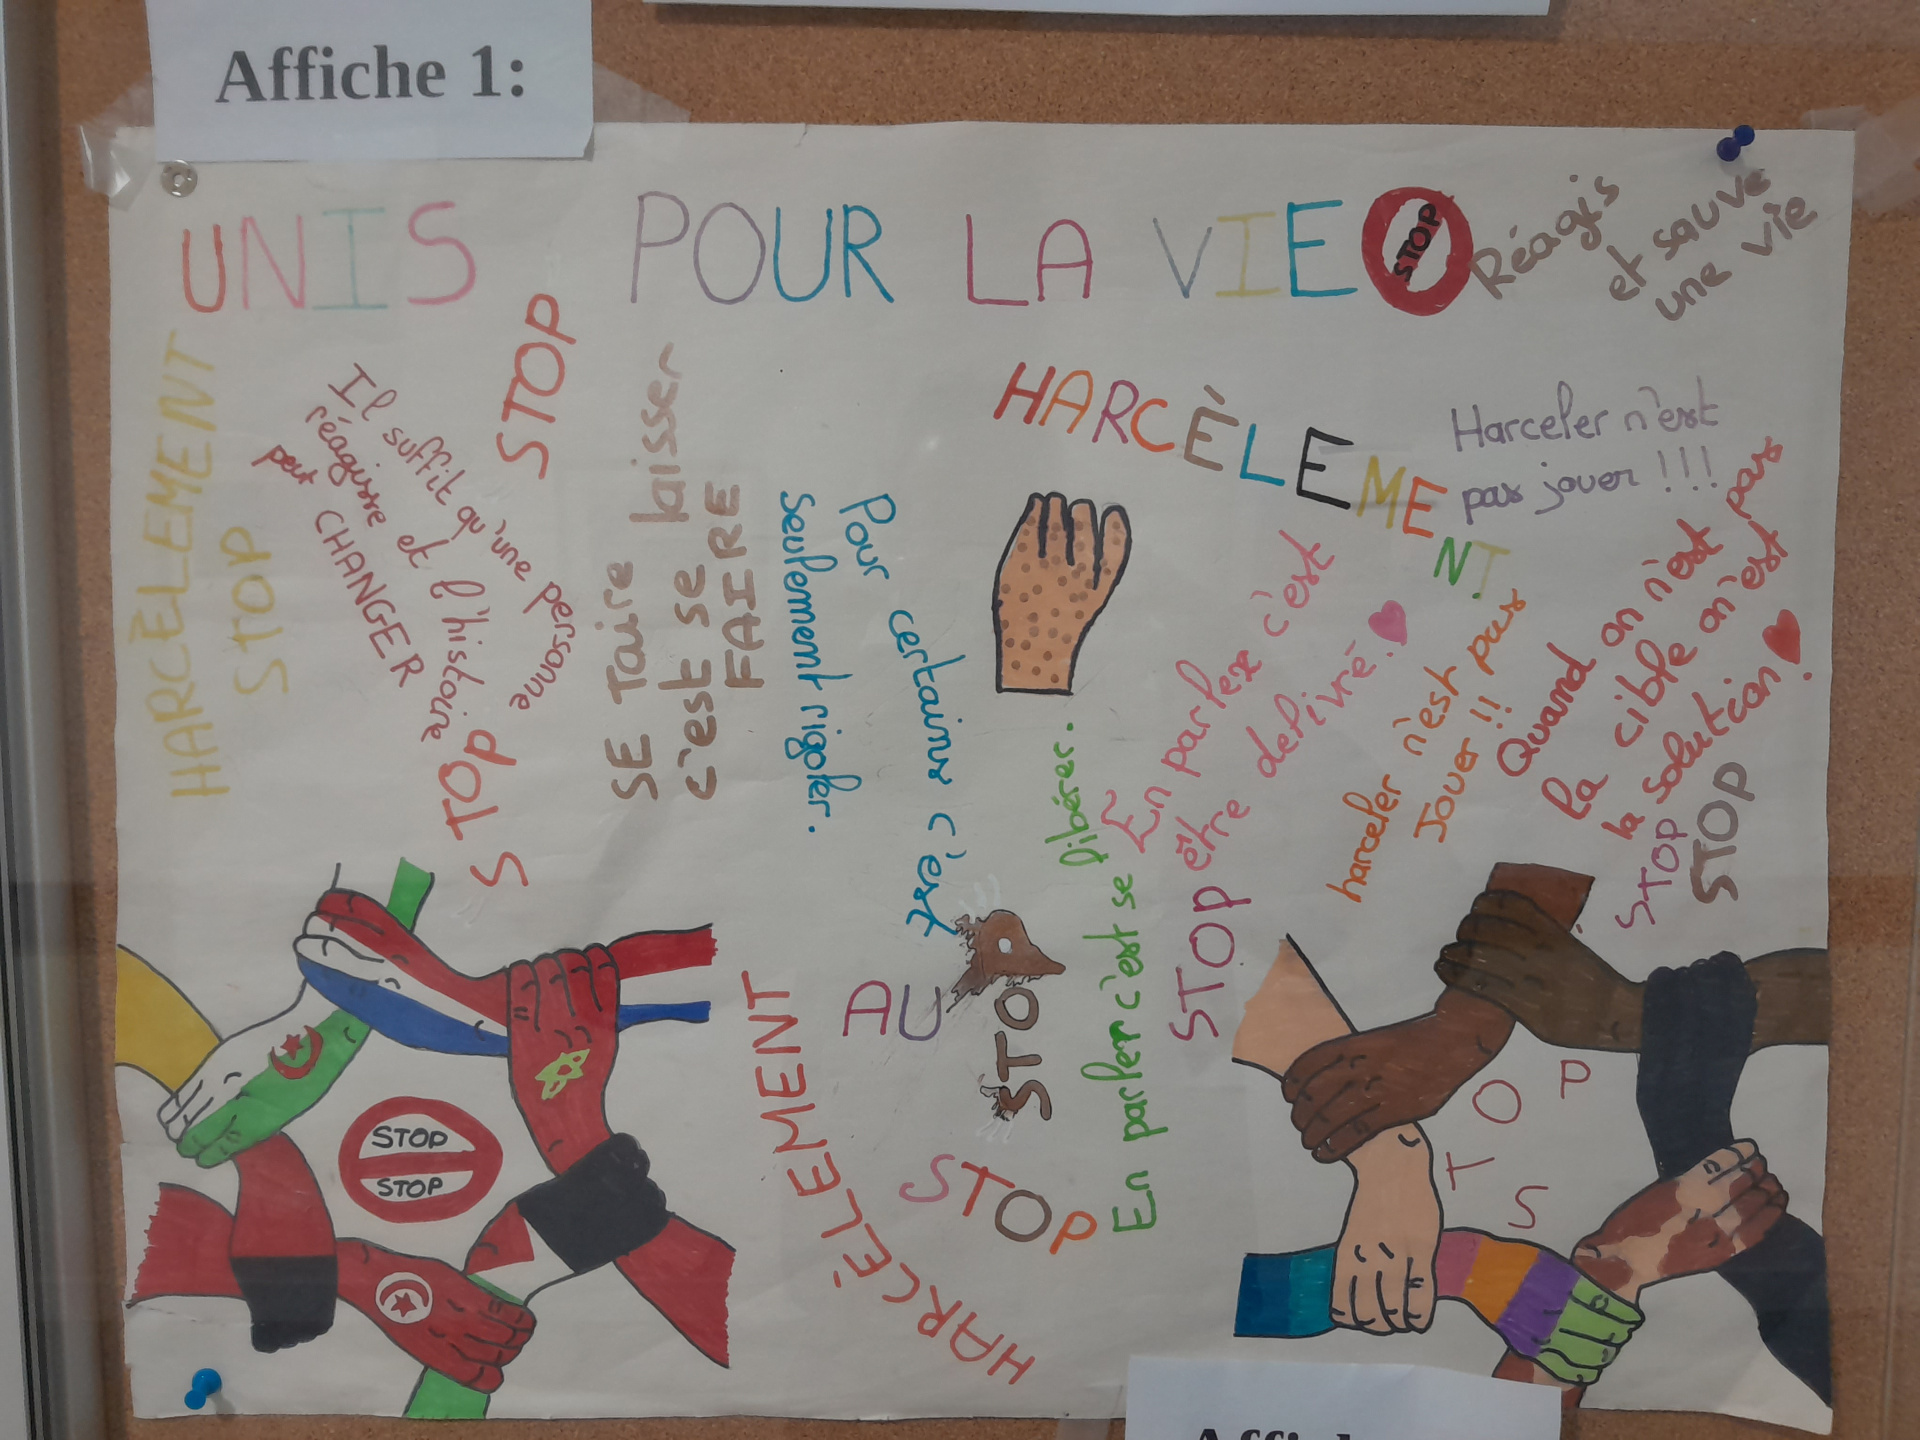 Affiche 1:
UNIS POUR LA VIE
STOP
Réagis
et sauve
une vie
HARCÈLEMENT
STOP
Il suffit qu'une personne
réagisse et l'histoire
peut CHANGER
STOP
STOP
S
SE Taire
c'est se laisser
FAIRE
Pour certains c'est
seulement rigoler.
HARCÈLEMENT
Harceler n'est
pas jouer !!!
En parler c'est
être delivré.
harceler n'est pas
Jouer !!
Quand on n'est pas
la cible on est
la solution !
STOP
STOP
STOP
En parler c'est se libérer.
AU
STOP
STOP
HARCÈLEMENT
STOP
STOP
STOP